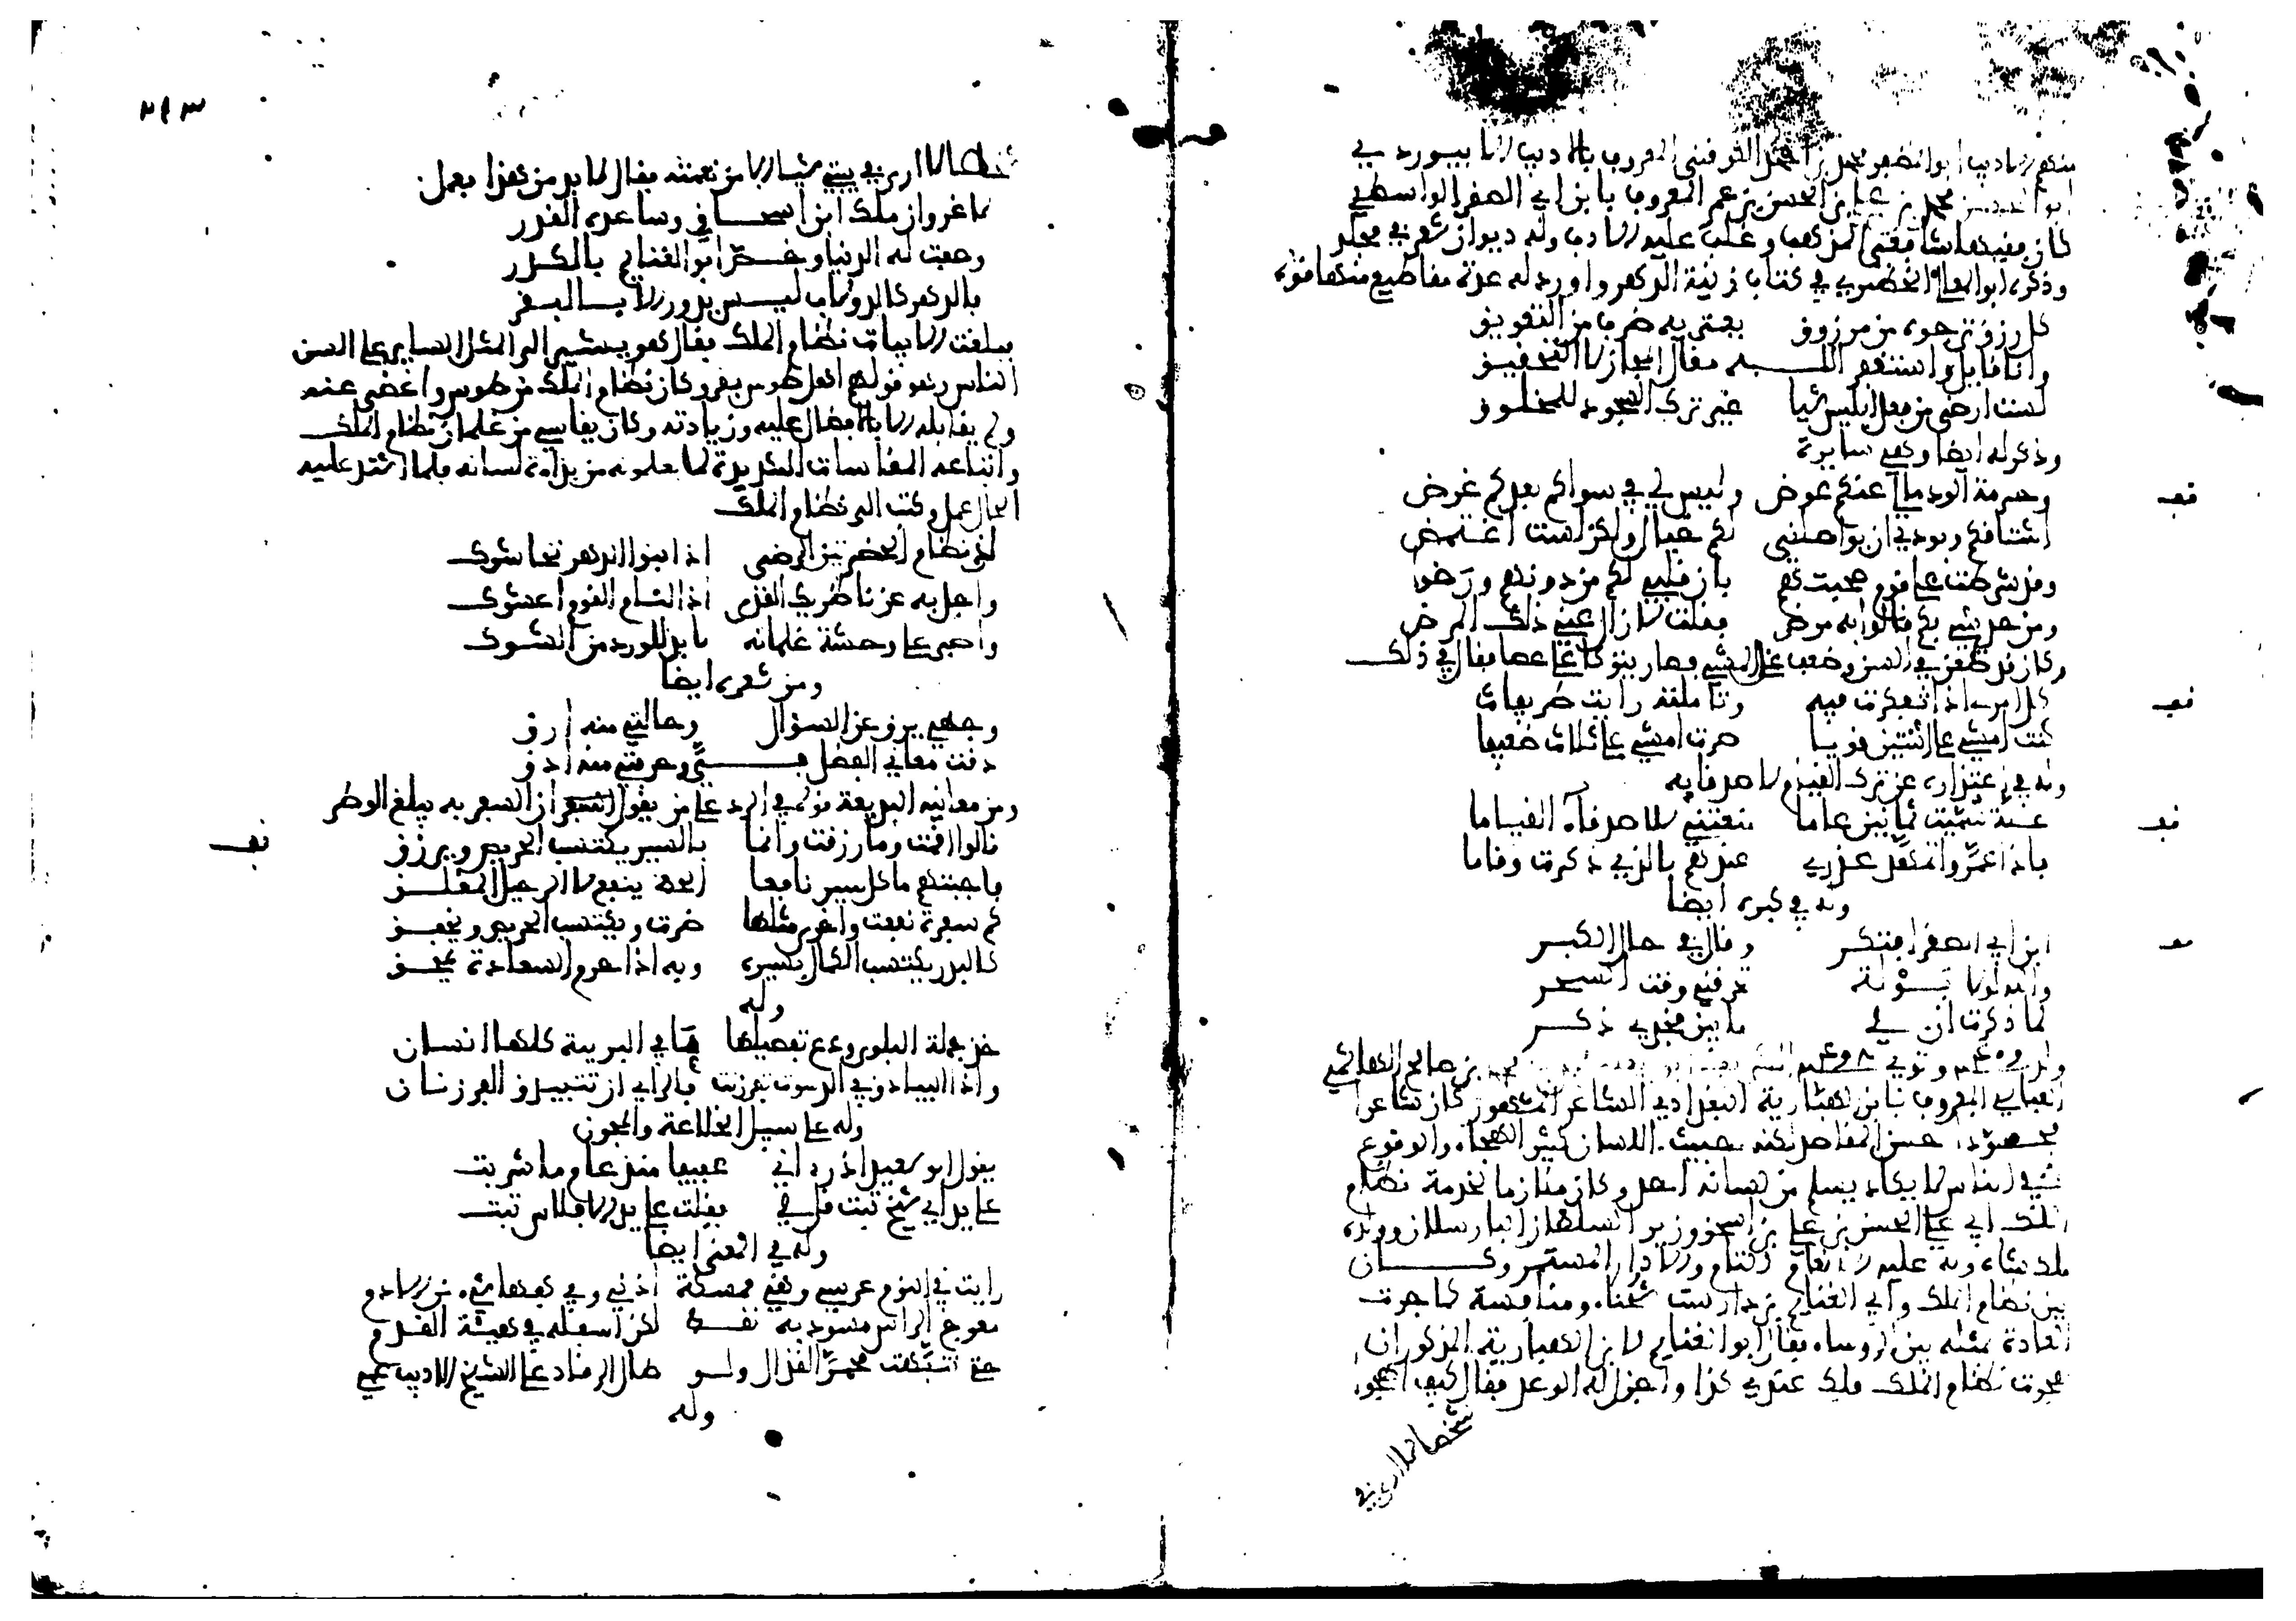 منهم الاديب ابو المظفر محمد بن احمد القرشي المعروف بالاديب الابيوردي
ابو الحسن محمد بن علي بن الحسن بن عمر المعروف بابن ابي الصقر الواسطي
كان فقيها شافعي المذهب وغلب عليه الادب وله ديوان شعر في مجلد
وذكره ابو المعالي الخضيري في كتاب زينة الدهر واورد له عدة مقاطيع منها قوله
كل رزق ترجوه من مرزوق يعتريه ضرب من التعويق
وانا قايل واستغفر اللـه مقال المجاز لا التحقيق
لست ارضى من فعل ابليس شيا غير ترك السجود للمخلوق
وذكر له ايضا وهي سايرة
وحرمة الود مالي عنكم عوض وليس لي في سواكم بعدكم غرض
اشتاقكم وبودي ان يواصلني لكم خيال ولكن لست اغتمض
وقد شرطت على قوم صحبتهم بان قلبي لكم من دونهم ورضوا
ومن حديثي بكم قالوا به مرض فقلت لا زال عني ذلك المرض
وكان قد طعن في السن وضعف عن المشي فصار يتوكا على عصا فقال في ذلك
كل امرء اذا تفكرت فيه وتاملته رايت ظريفا
كنت امشي على اثنتين قويا صرت امشي على ثلاث ضعيفا
وله في اعتذاره عن ترك القيام لاصدقايه
علة سميت ثمانين عاما منعتني للاصدقاء القياما
فاذا عمروا تمهد عذري عندهم بالذي ذكرت وقاما
وله في كبره ايضا
ابن ابي الصقر افتكر وقال في حال الكبر
والله لولا بَوْلة تحرقني وقت السحر
لما ذكرت ان لي ما بين فخذي ذكر
بن صالح الهاشمي
العباسي المعروف بابن الهبارية البغدادي الشاعر المشهور كان شاعرا
حسن المقاصد لكنه خبيث اللسان كثير الهجاء والوقوع
في الناس لا يكاد يسلم من لسانه احد وكان ملازما لخدمة نظام
الملك ابي علي الحسن بن علي بن اسحق وزير السلطان البارسلان وولده
ملكشاه وله عليه الانعام التام والادرار المستمر وكـــان
بين نظام الملك وابي الغنايم بن دارست شحناء ومنافسة كما جرت
العادة بمثله بين الروساء فقال ابو الغنايم لابن الهبارية المذكور ان
هجوت نظام الملك فلك عندي كذا واجزل له الوعد فقال كيف اهجو
شخصا لا ارى في
٢٩٣
شخصا لا ارى في بيتي شيا الا من نعمته فقال لا بد من هذا فعمل
لا غرو ان ملك ابن اسحـاق وساعده القدر
وصفت له الدنيا وخـص ابو الغنايم بالكدر
فالدهر كالدولاب ليـس يدور الا بـالبقر
فبلغت الابيات نظام الملك فقال هو يشير الى المثل الساير على السن
الناس وهو قولهم اهل طوس بقر وكان نظام الملك من طوس واغضى عنه
ولم يقابله الا بالافضال عليه وزيادته وكان يقاسي من غلمان نظام الملك
واتباعه المقاسات الشديدة لما يعلمونه من بذاءة لسانه فلما اشتد عليه
الحال عمل وكتب الى نظام الملك
لذ بنظام الحضرتين الرضى اذا ابنوا الدهر تحاشوك
واجل به عن ناظريك القذى اذا اللئام القوم اعشوك
واصبر على وحشة غلمانه لا بد للورد من الشوك
ومن شعره ايضا
وجهي يرق عن السؤال وحالتي منه ارق
دقت معاني الفضل فـــيَّ وحرفتي منه ادق
ومن معانيه البديعة قوله في الرد على من يقول ان السفر به يبلغ الوطر
قالوا اقمت وما رزقت وانما بالسير يكتسب الحريص ويرزق
فاجبتهم ما كل سير نافعا الحظ ينفع لا الرحيل المقلـق
كم سفرة نفعت واخرى مثلها ضرت ويكتسب الحريص ويخفـق
كالبدر يكتسب الكمال بسيره وبه اذا حرم السعادة يمحـق
وله
خذ جملة البلوى ودع تفصيلها ما في البرية كلها انسان
واذا البياذق في الدسوت تفرزنت فالراي ان تتبيذق الفرزان
وله على سبيل الخلاعة والمجون
يقول ابو سعيد اذ رءاني عفيفا منذ عام ما شربت
على يد اي شيخ تبت قل لي فقلت على يد الافلاس تبت
وله في المعنى ايضا
رايت في النوم عرسي وهي ممسكة اذني وفي كفها شيء من الادم
معوج الراس مسود به نقـط لكن اسفله في هيئة القدم
حتى تنبهت محمر القذال ولـو طال الرقاد على الشيخ الاديب عمي
وله